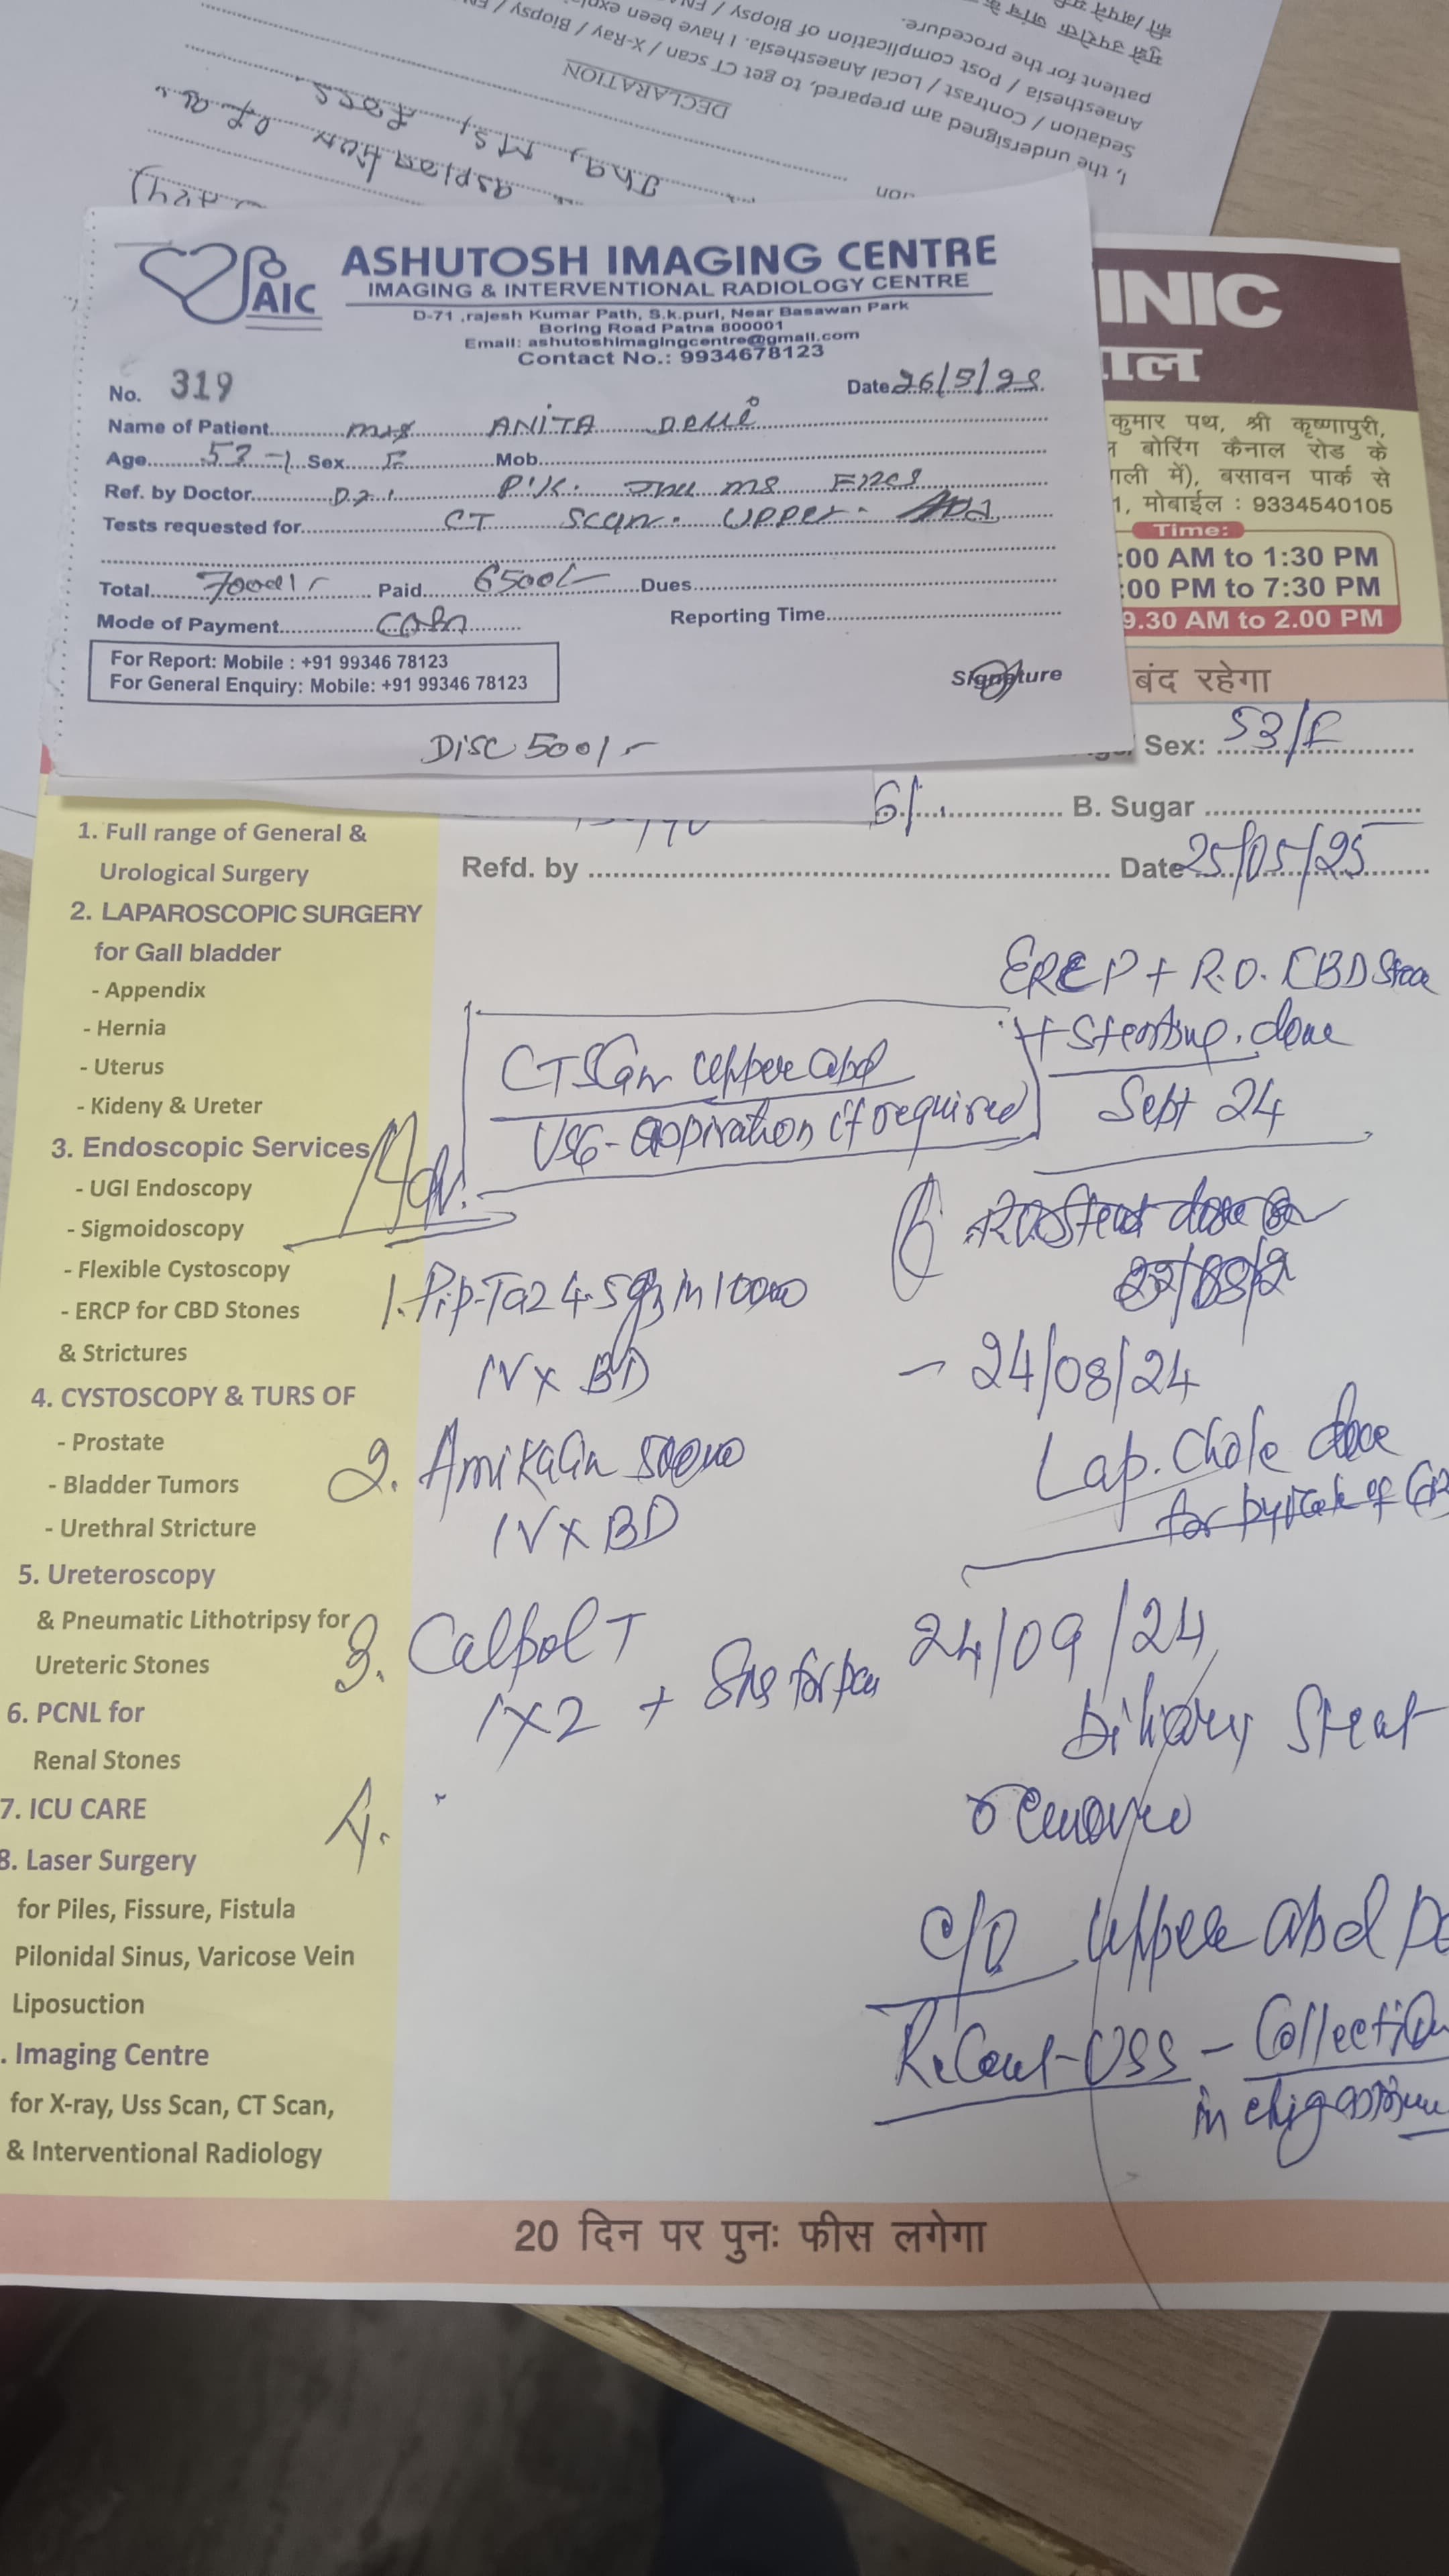 की
मुझे उपरोक्त जांच के
patient for the procedure.
Anaesthesia / Post complication of Biopsy /
Sedation / Contrast / Local Anaesthesia. I have been
I, the undersigned am prepared, to get CT scan / X-Ray / Biopsy /
DECLARATION
AIC
ASHUTOSH IMAGING CENTRE
IMAGING & INTERVENTIONAL RADIOLOGY CENTRE
D-71 ,rajesh Kumar Path, S.k.puri, Near Basawan Park
Boring Road Patna 800001
Email: ashutoshimagingcentre@gmail.com
Contact No.: 9934678123
No. 319
Date 26/5/25
Name of Patient mrs ANITA Devi
Age 53 Sex F Mob.
Ref. by Doctor Dr. P.K. Jha MS FRCS
Tests requested for CT Scan. Upper. Abd
Total 7000/- Paid 6500/- Dues
Mode of Payment Cash Reporting Time
For Report: Mobile : +91 99346 78123
For General Enquiry: Mobile: +91 99346 78123
Signature
DISC 500/-
INIC
ाल
कुमार पथ, श्री कृष्णापुरी,
बोरिंग कैनाल रोड के
गली में), बसावन पार्क से
1, मोबाईल : 9334540105
Time:
:00 AM to 1:30 PM
:00 PM to 7:30 PM
9.30 AM to 2.00 PM
बंद रहेगा
Sex: 53/F
B. Sugar
Refd. by Date 25/05/25
1. Full range of General &
Urological Surgery
2. LAPAROSCOPIC SURGERY
for Gall bladder
- Appendix
- Hernia
- Uterus
- Kideny & Ureter
3. Endoscopic Services
- UGI Endoscopy
- Sigmoidoscopy
- Flexible Cystoscopy
- ERCP for CBD Stones
& Strictures
4. CYSTOSCOPY & TURS OF
- Prostate
- Bladder Tumors
- Urethral Stricture
5. Ureteroscopy
& Pneumatic Lithotripsy for
Ureteric Stones
6. PCNL for
Renal Stones
7. ICU CARE
8. Laser Surgery
for Piles, Fissure, Fistula
Pilonidal Sinus, Varicose Vein
Liposuction
. Imaging Centre
for X-ray, Uss Scan, CT Scan,
& Interventional Radiology
Adv.
CT Scan Upper abd
USG-aspiration if required
1. Pip-Taz 4.5 gm in 100ml
IV x BD
2. Amikacin 500mg
IV x BD
3. Calpol T
1x2 + SOS for pain
4.
ERCP + R.O. CBD Stone
+ Stenting. done
Sept 24
- 24/08/24
Lap. Chole done
for of GB
24/09/24
biliary Stent
removed
C/O Upper abd
Recent-USS - Collection
in epigastrium
20 दिन पर पुनः फीस लगेगा